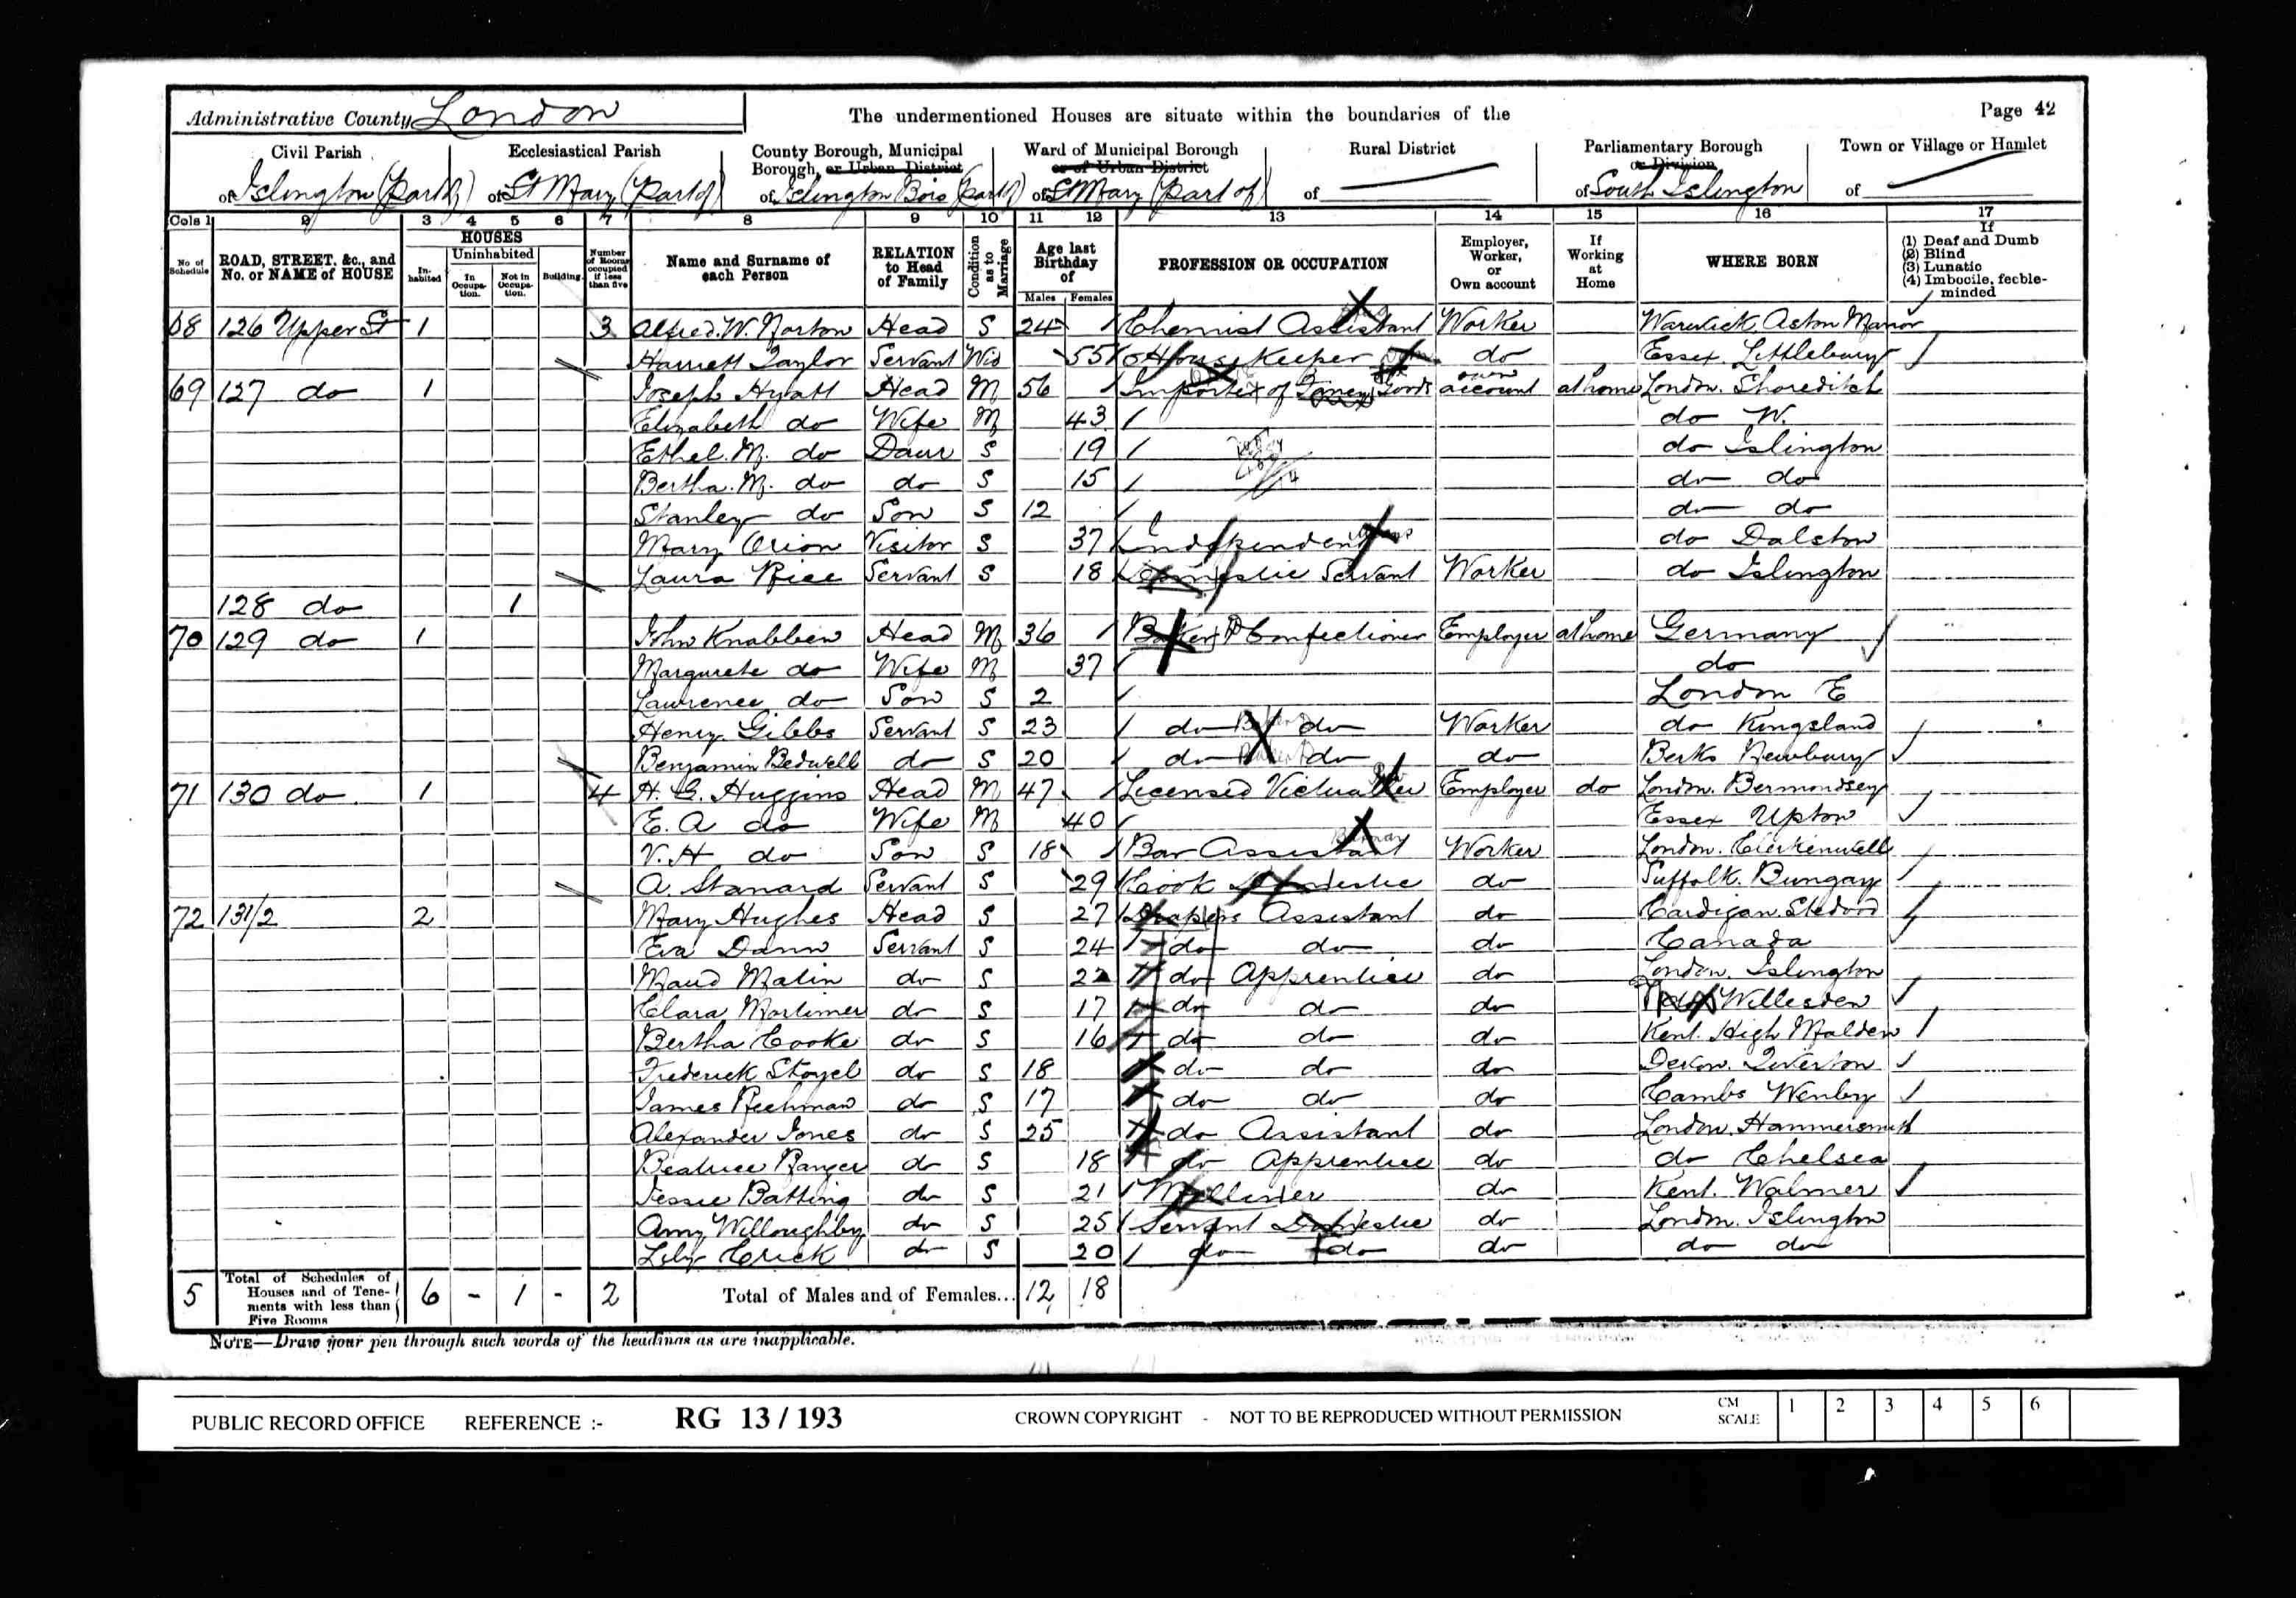 Administrative County London The undermentioned Houses are situate within the boundaries of the Page 42
Civil Parish Ecclesiastical Parish County Borough, Municipal Borough, or Urban District Ward of Municipal Borough or of Urban District Rural District Parliamentary Borough or Division Town or Village or Hamlet
of Islington (part of) of St Mary (part of) of Islington Boro (part of) of St Mary (part of) of of South Islington of
Cols 1 2 3 4 5 6 7 8 9 10 11 12 13 14 15 16 17
No of Schedule ROAD, STREET, &c., and No. or NAME of HOUSE HOUSES Inhabited Uninhabited In Occupation. Not in Occupation. Building. Number of Rooms occupied if less than five Name and Surname of each Person RELATION to Head of Family Condition as to Marriage Age last Birthday of Males Females PROFESSION OR OCCUPATION Employer, Worker, or Own account If Working at Home WHERE BORN If (1) Deaf and Dumb (2) Blind (3) Lunatic (4) Imbecile, feeble-minded
68 126 Upper St 1 3 Alfred. W. Norton Head S 24 Chemist Assistant Worker Warwick Aston Manor
Harriett Taylor Servant Wid 55 House Keeper do Essex. Littlebury
69 127 do 1 Joseph Hyatt Head M 56 Importer of Fancy Goods own account at home London. Shoreditch
Elizabeth do Wife M 43 do W.
Ethel. M. do Daur S 19 do Islington
Bertha. M. do do S 15 do do
Stanley do Son S 12 do do
Mary Orion Visitor S 37 Independent do Dalston
Laura Rice Servant S 18 Domestic Servant Worker do Islington
128 do 1
70 129 do 1 John Knabben Head M 36 Baker & Confectioner Employer at home Germany
Margurete do Wife M 37 do
Lawrence do Son S 2 London E
Henry Gibbs Servant S 23 do do Worker do Kingsland
Benjamin Bedwell do S 20 do do do Berks Newbury
71 130 do 1 4 H. G. Huggins Head M 47 Licensed Victualler Employer do London. Bermondsey
E. A do Wife M 40 Essex Upton
V. H do Son S 18 Bar Assistant Worker London. Clerkenwell
A. Stanard Servant S 29 Cook Domestic do Suffolk. Bungay
72 131/2 2 Mary Hughes Head S 27 Drapers Assistant do Cardigan.
Eva Dann Servant S 24 do do do Canada
Maud Malin do S 22 do Apprentice do London. Islington
Clara Mortimer do S 17 do do do Willesden
Bertha Cooke do S 16 do do do Kent. High Malden
Frederick Stoyel do S 18 do do do Devon. Tiverton
James do S 17 do do do Cambs
Alexander Jones do S 25 do Assistant do London. Hammersmith
Beatrice Ranger do S 18 do Apprentice do do Chelsea
Jessie Batting do S 21 Milliner do Kent. Walmer
Amy Willoughby do S 25 Servant Domestic do London. Islington
Lily Crick do S 20 do do do do do
5 Total of Schedules of Houses and of Tenements with less than Five Rooms 6 - 1 - 2 Total of Males and of Females... 12 18
NOTE—Draw your pen through such words of the headings as are inapplicable.
PUBLIC RECORD OFFICE REFERENCE :- RG 13 / 193 CROWN COPYRIGHT - NOT TO BE REPRODUCED WITHOUT PERMISSION CM SCALE 1 2 3 4 5 6